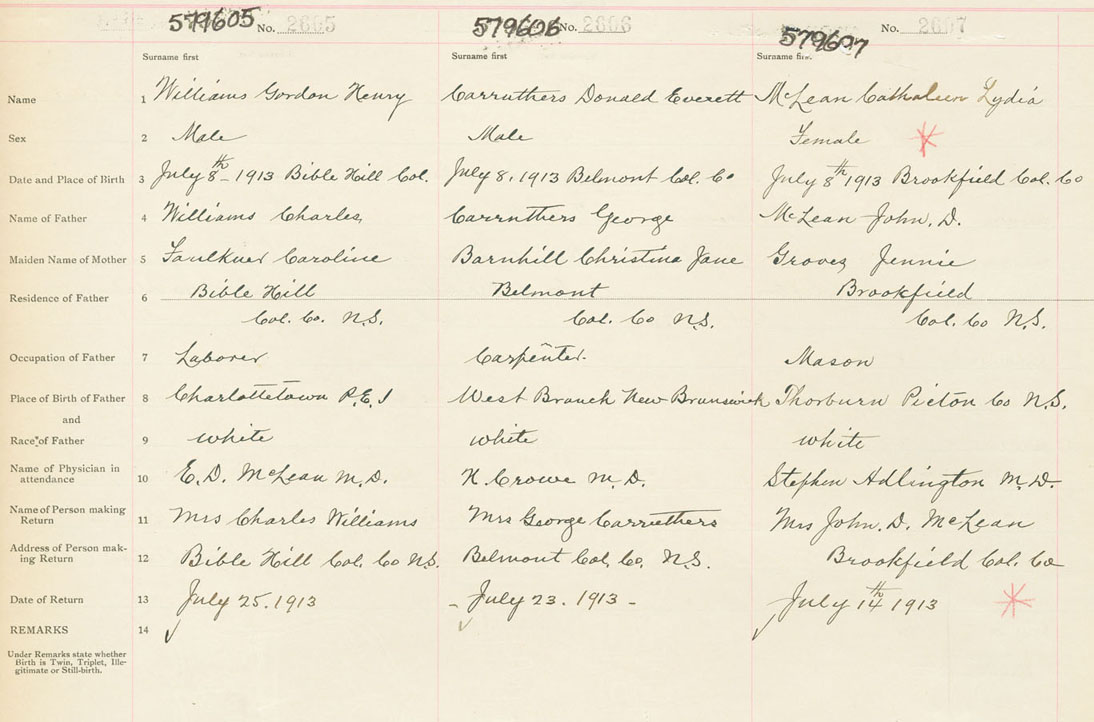 579605 No. 2605 579606 No. 2606 579607 No. 2607
Surname first Surname first Surname first
Name 1 Williams Gordon Henry Carruthers Donald Everett McLean Cathaleen Lydia
Sex 2 Male Male Female
Date and Place of Birth 3 July 8th 1913 Bible Hill Col. July 8, 1913 Belmont Col. Co July 8th 1913 Brookfield Col. Co
Name of Father 4 Williams Charles Carruthers George McLean John. D.
Maiden Name of Mother 5 Faulkner Caroline Barnhill Christina Jane Groves Jennie
Residence of Father 6 Bible Hill Belmont Brookfield
Col. Co. N.S. Col. Co N.S. Col. Co N.S.
Occupation of Father 7 Laborer Carpenter. Mason
Place of Birth of Father 8 Charlottetown P.E.I West Branch New Brunswick Thorburn Picton Co N.S.
and
Race of Father 9 white white white
Name of Physician in
attendance 10 E.D. McLean M.D. H. Crowe M.D. Stephen Adlington M.D.
Name of Person making
Return 11 Mrs Charles Williams Mrs George Carruthers Mrs John. D. McLean
Address of Person mak-
ing Return 12 Bible Hill Col. Co N.S. Belmont Col. Co. N.S. Brookfield Col. Co
Date of Return 13 July 25. 1913 - July 23. 1913 - July 14th 1913
REMARKS 14
Under Remarks state whether
Birth is Twin, Triplet, Ille-
gitimate or Still-birth.